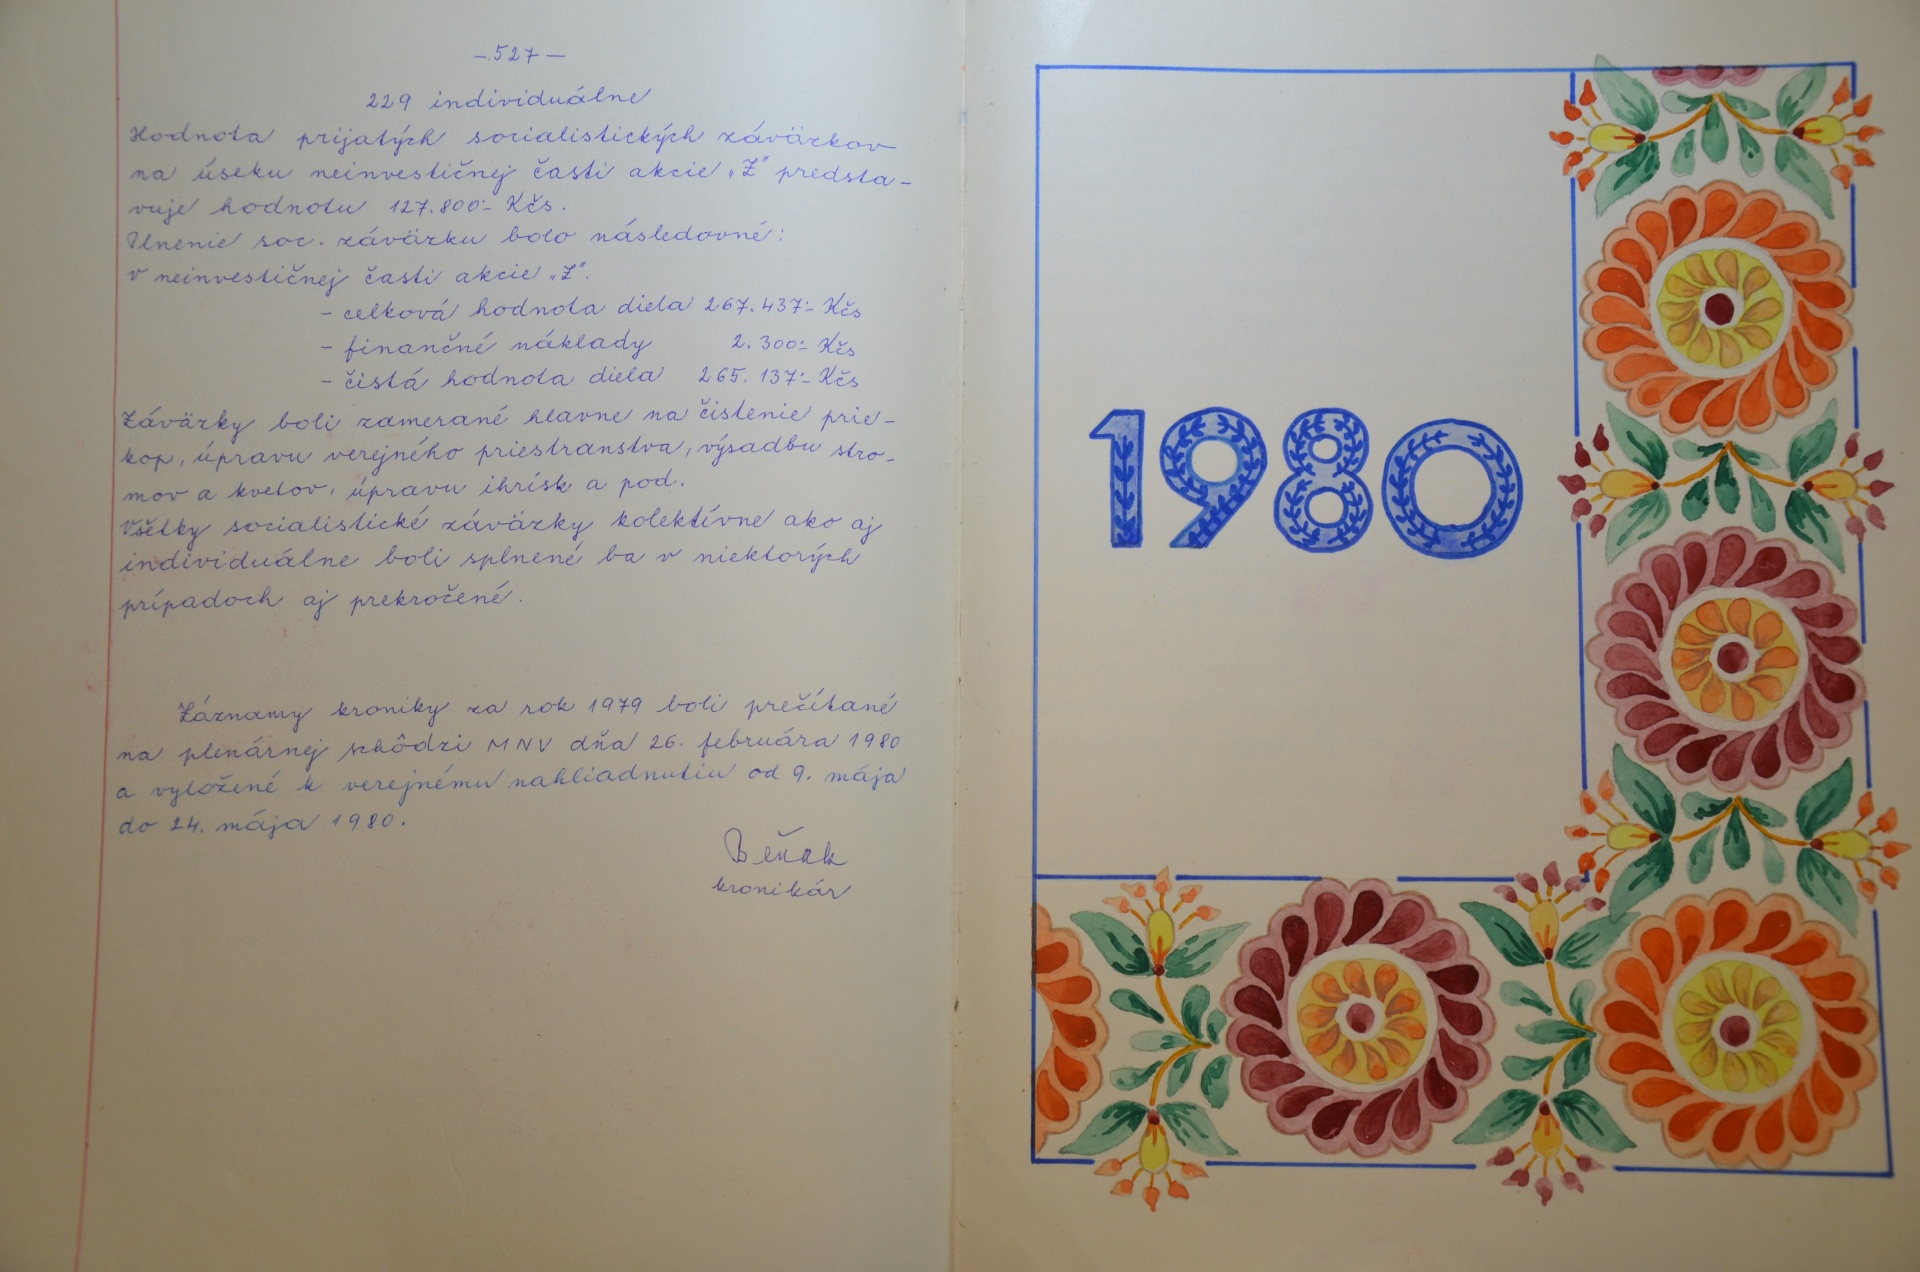 – 527 –
229 individuálne
Hodnota prijatých socialistických záväzkov
na úseku neinvestičnej časti akcie „Z" predsta-
vuje hodnotu 127.800·- Kčs.
Plnenie soc. záväzku bolo následovné:
v neinvestičnej časti akcie „Z".
- celková hodnota diela 267.437·- Kčs
- finančné náklady 2.300·- Kčs
- čistá hodnota diela 265.137·- Kčs
Záväzky boli zamerané hlavne na čistenie prie-
kop, úpravu verejného priestranstva, výsadbu stro-
mov a kvetov, úpravu ihrísk a pod.
Všetky socialistické záväzky kolektívne ako aj
individuálne boli splnené ba v niektorých
prípadoch aj prekročené.
Záznamy kroniky za rok 1979 boli prečítané
na plenárnej schôdzi MNV dňa 26. februára 1980
a vyložené k verejnému nahliadnutiu od 9. mája
do 24. mája 1980.
kronikár
1980